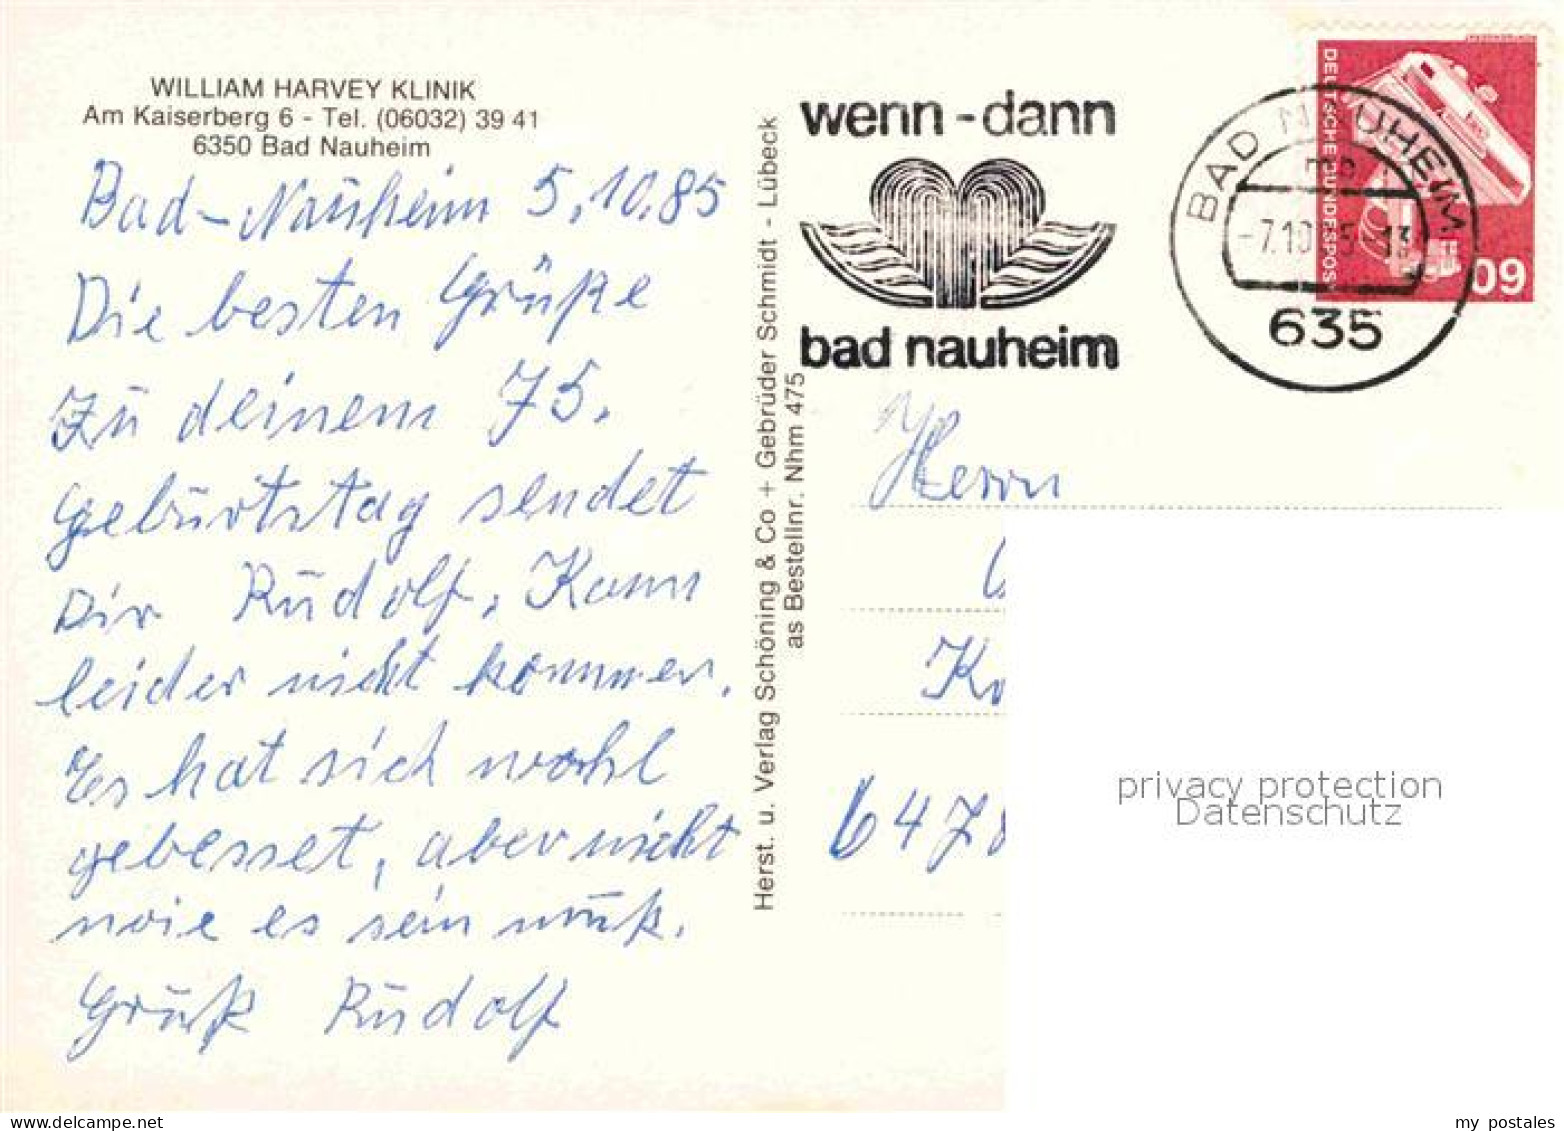 WILLIAM HARVEY KLINIK
Am Kaiserberg 6 - Tel. (06032) 39 41
6350 Bad Nauheim
Bad-Nauheim 5.10.85
Die besten Grüße
zu deinem 75.
Geburtstag sendet
Dir Rudolf, Kann
leider nicht kommen.
Es hat sich wohl
gebesset, aber nicht
wie es sein muß.
Gruß Rudolf
Herst. u. Verlag Schöning & Co + Gebrüder Schmidt - Lübeck
as Bestellnr. Nhm 475
wenn - dann
bad nauheim
BAD NAUHEIM
635
DEUTSCHE BUNDESPOST
60
Herrn
privacy protection
Datenschutz
my postales